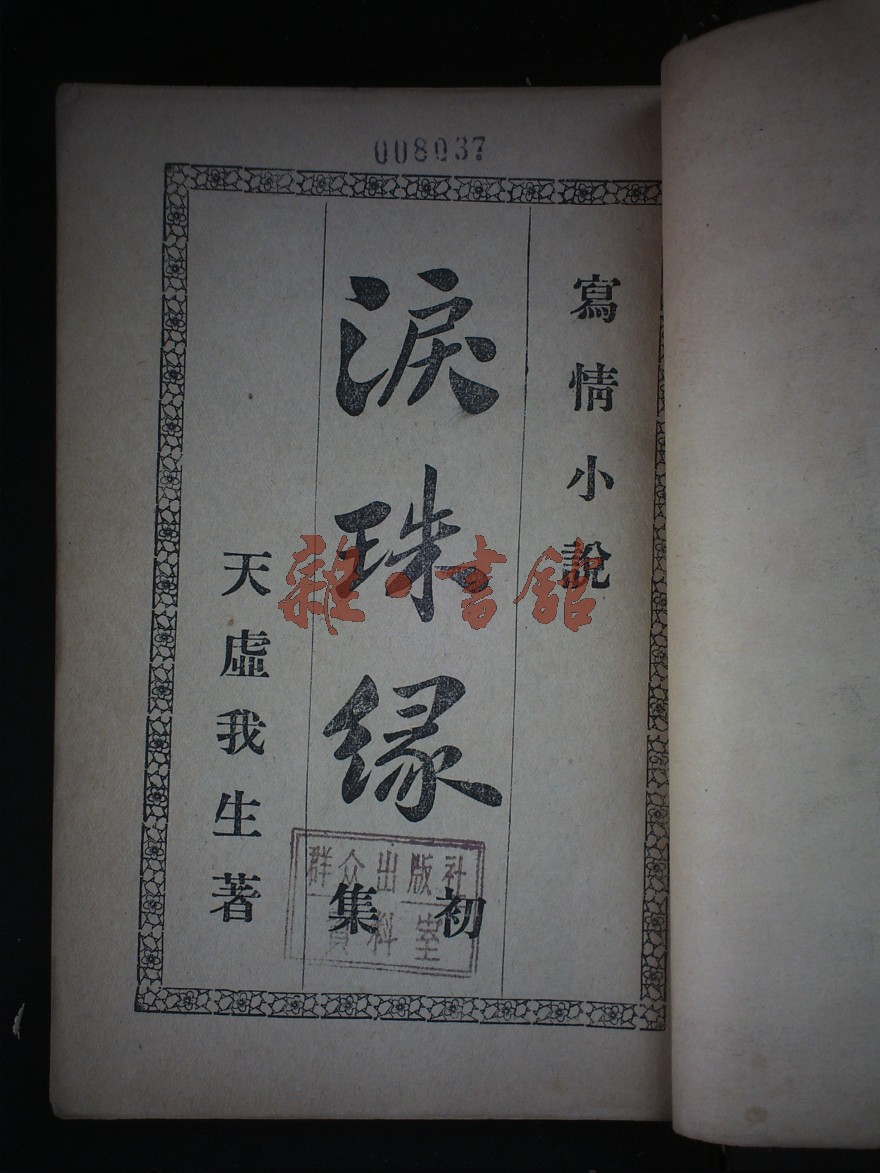 008037
寫情小說
淚珠緣
初集
天虛我生著
群众出版社
資料室
雜·書館